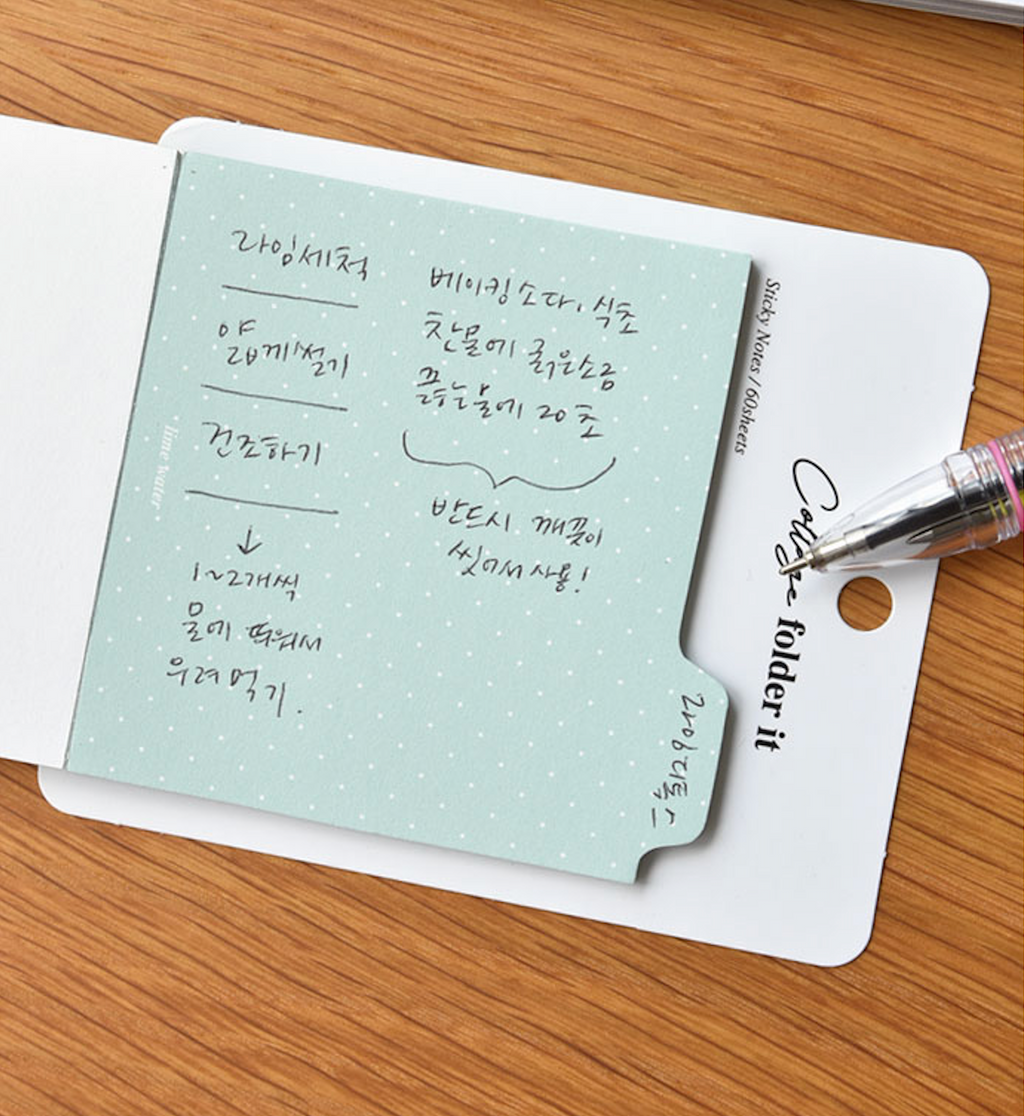 라임세척
얇게썰기
건조하기
↓
1~2개씩
물에 띄워서
우려먹기.
베이킹소다, 식초
찬물에 굵은소금
끓는물에 20초
반드시 깨끗이
씻어서 사용!
lime water
Sticky Notes / 60sheets
College folder it